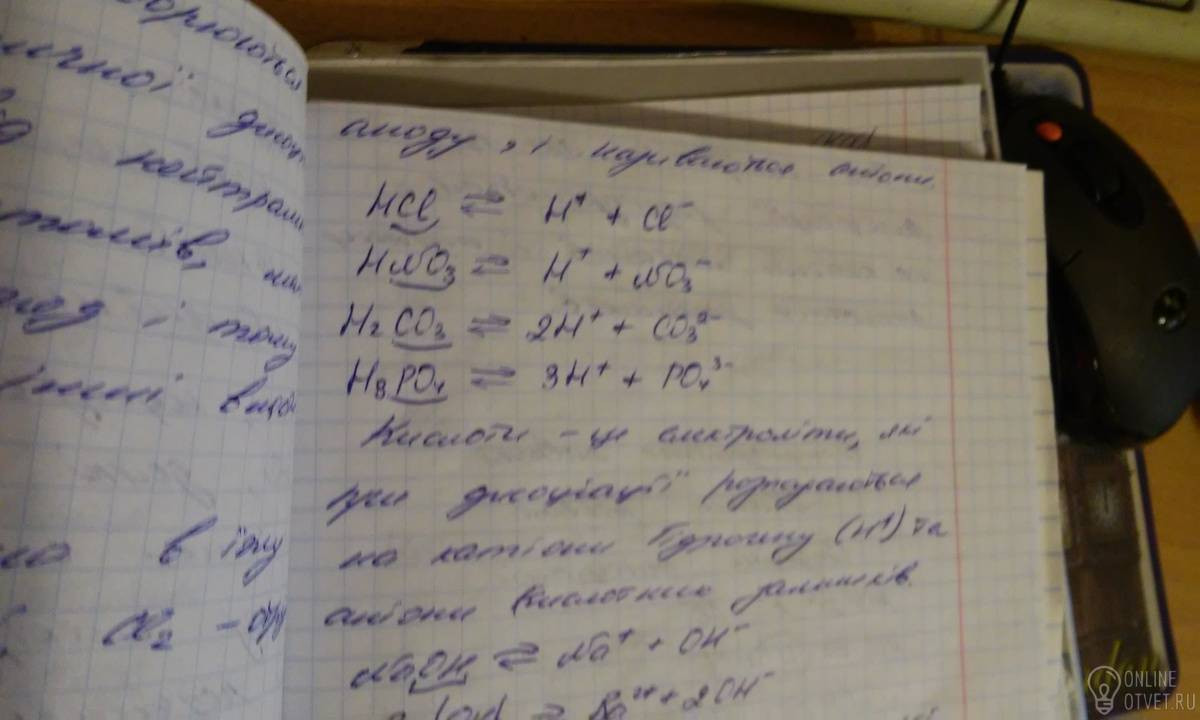 орюються
ичної дисоц
нейтраль
томів,
і тому
інші
в
Cl₂ –
аноду, і називаються аніони.
HCl ⇌ H⁺ + Cl⁻
HNO₃ ⇌ H⁺ + NO₃⁻
H₂CO₃ ⇌ 2H⁺ + CO₃²⁻
H₃PO₄ ⇌ 3H⁺ + PO₄³⁻
Кислоти – це електроліти, які
при дисоціації розпадаються
на катіони Гідрогену (H⁺) та
аніони кислотних залишків.
NaOH ⇌ Na⁺ + OH⁻
(OH) ⇌ Ba²⁺ + 2OH⁻
ONLINE
OTVET.RU